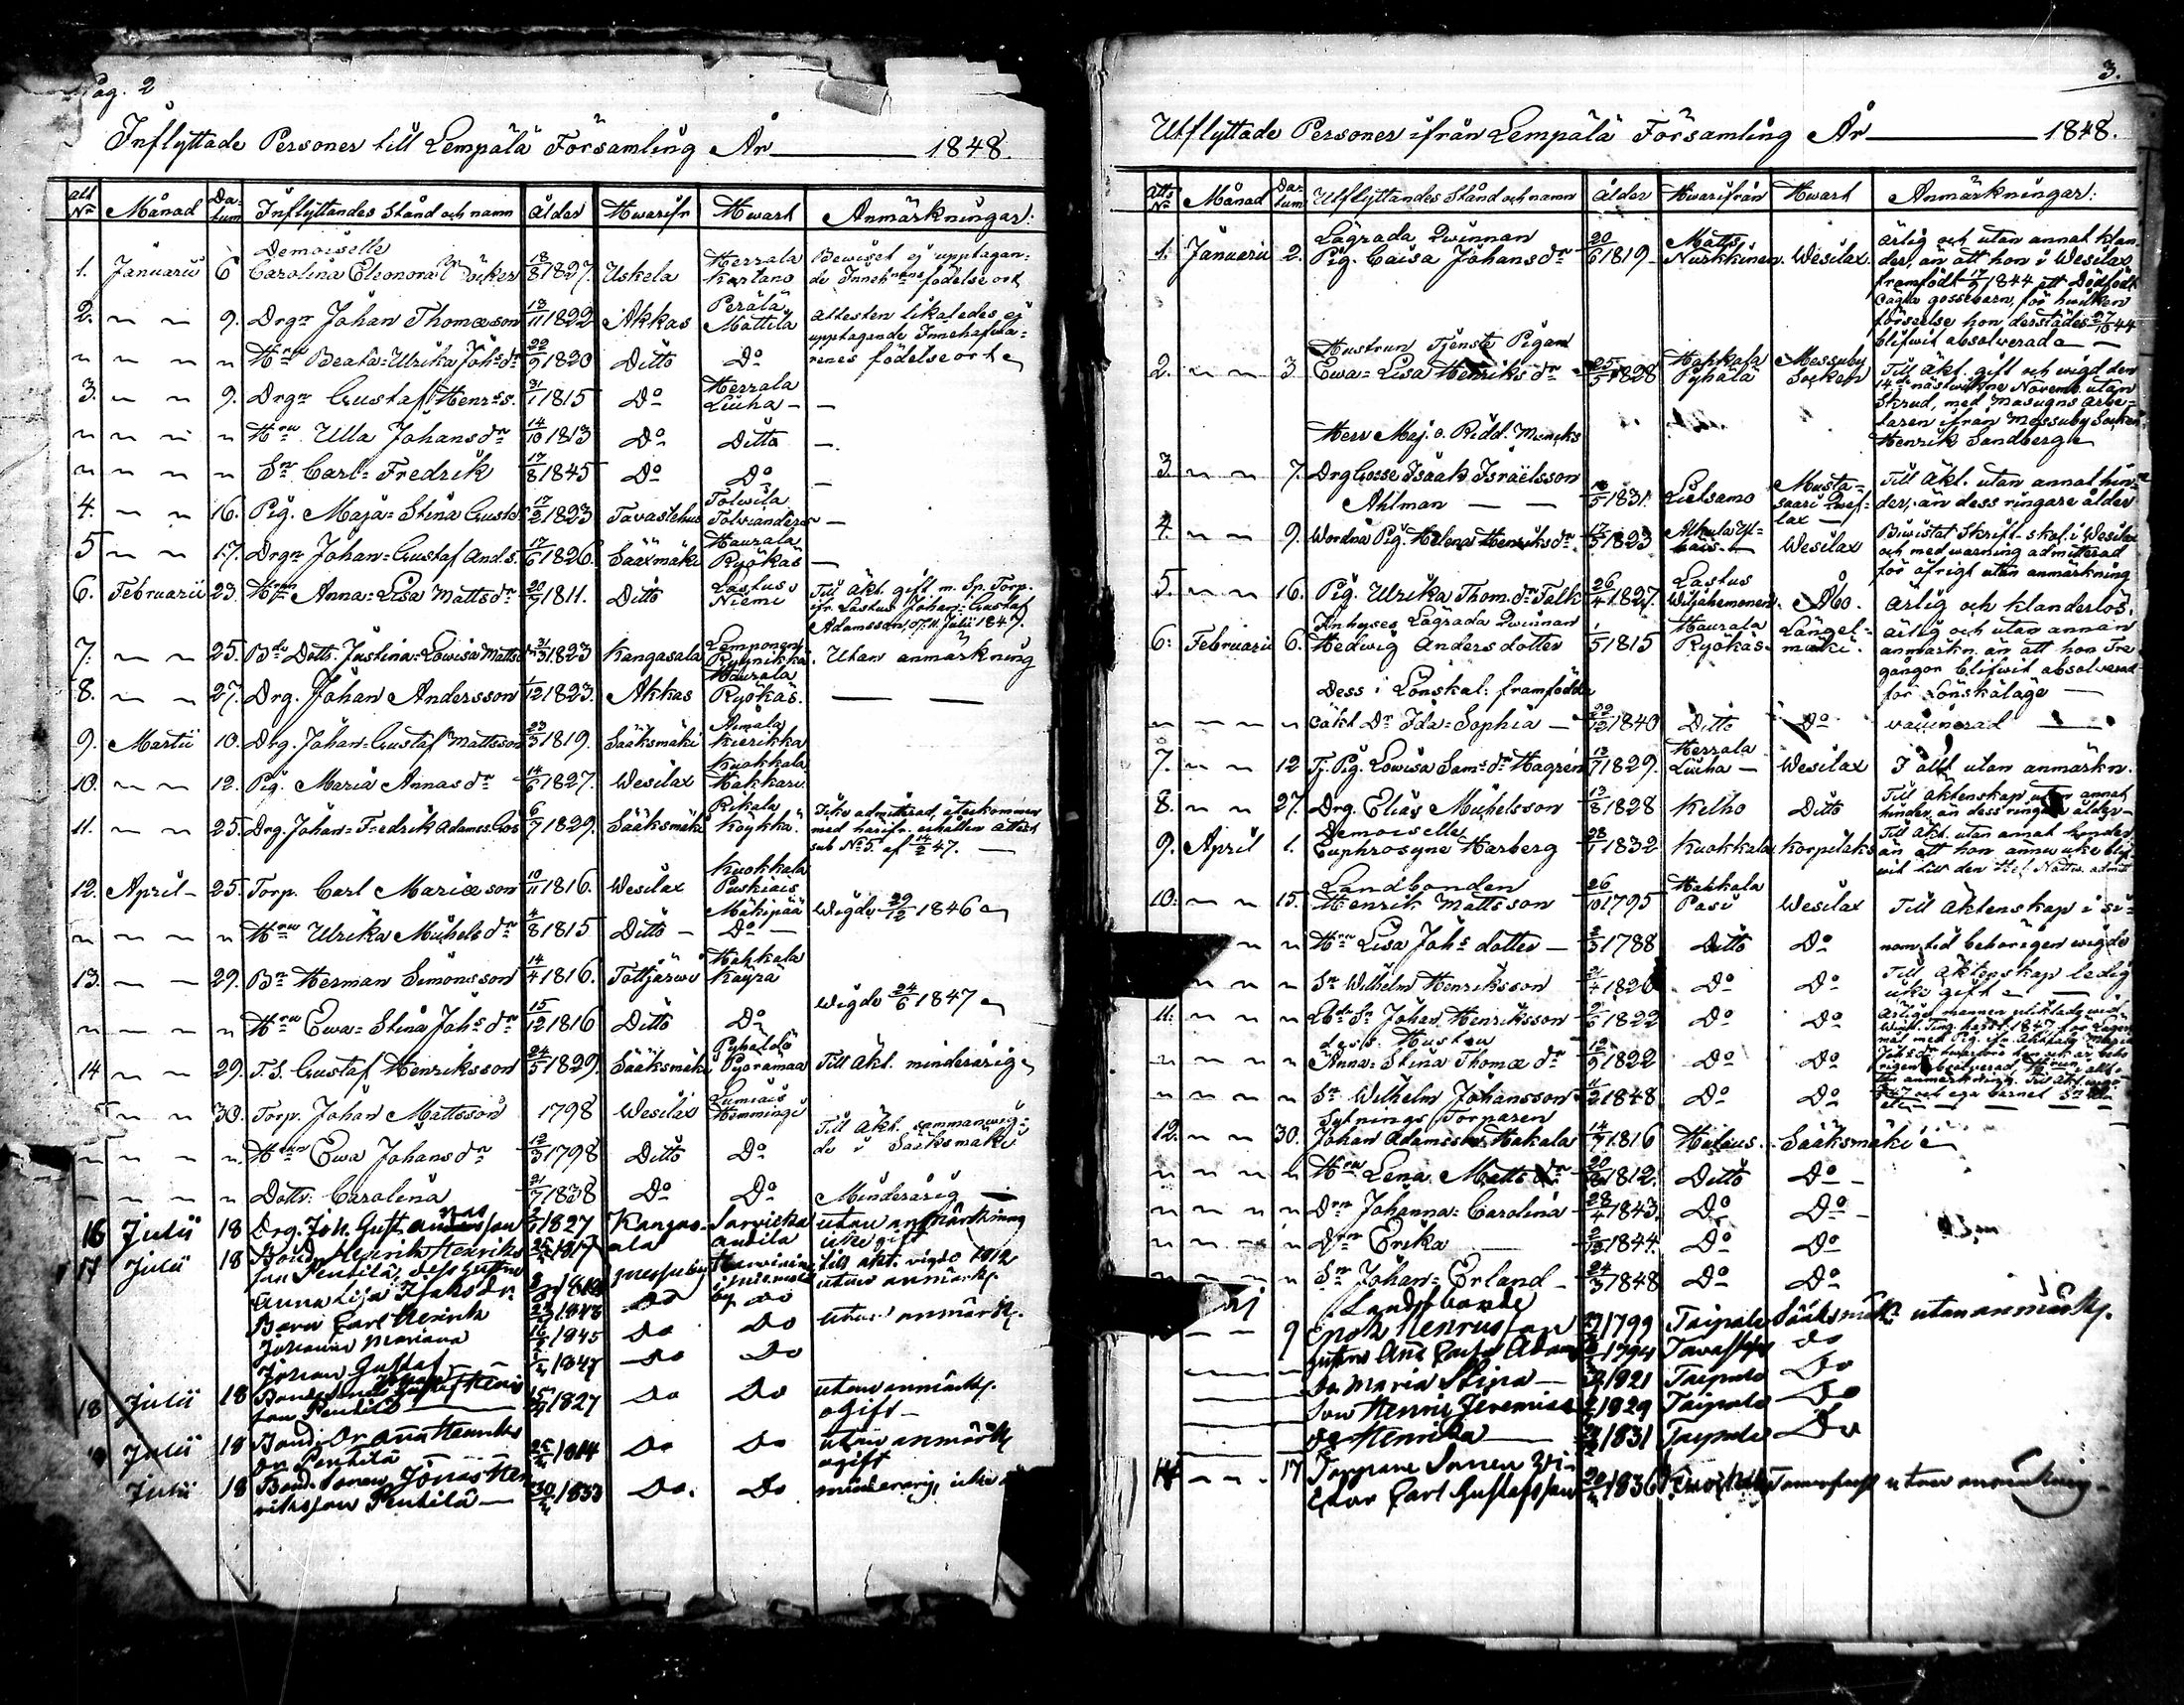 Pag. 2
Inflyttade Personer till Lempälä Församling År 1848.
Att No Månad Datum Inflyttandes Stånd och namn Ålder Hwarifr Hwart Anmärkningar:
Demoiselle
1. Januarii 6 Carolina Eleonora 18/8 1827. Uskela Herrala Kartano Bewiset ej upptagande Inneh:nes födelseort
2. " " 9. Drgn Johan Thomæson 13/11 1822 Akkas Perälä Mattila Attesten likaledes ej upptagande Innehafwarenes födelseort
" " " " Hru Beata=Ulrika Joh:s dr 22/9 1820 Ditto Do
3. " " 9. Drgn Gustaf Henr:s s. 31/1 1815 Do Herrala Liuha —
" " " " Hru Ulla Johans dr 14/10 1813 Do Ditto —
" " " " Sn Carl=Fredrik 17/8 1845 Do Do —
4. " " 16. Pig. Maja=Stina Gust:dr 17/2 1823 Tavastehus Tolwila Tolvanders —
5 " " 17. Drgn Johan=Gustaf And.s. 17/6 1826. Sääxmäki Haurala Ryökäs —
6. Februarii 23. Hru Anna=Lisa Mattsdr 20/9 1811. Ditto Lastus Niemi Till Äkt. gift m. Sp. Torp. ifr. Lastus Johan=Gustaf Adamsson, d. 11 Julii 1847.
7. " " 25. Bde Dottr. Justina=Lowisa Matts dr 31/3 1823 Kangasala Lemponen Rynikka. Utan anmärkning
8. " " 27. Drg. Johan Andersson 1/12 1823. Akkas Haurala Ryökäs. — —
9. Martii 10. Drg. Johan=Gustaf Mattsson 23/3 1819. Sääksmäki Aimala Kierikka
10. " " 12. Pig. Maria Annas dr 14/6 1827. Wesilax Kuokkala Hakkari
11. " " 25. Drg. Johan=Fredrik Adams. 6/7 1829. Sääksmäki Rikala Köykkä. Icke admitterad, återkommen med härifr. erhållen attest sub No 5. af 14/2 47.
12. April 25. Torp. Carl Mariæson 10/11 1816. Wesilax Kuokkala Puskiais Mäkipää Wigde 29/12 1846
" " " " Hru Ulrika Michels dr 4/8 1815 Ditto Do
13. — — 29. Bn Herman Simonsson 14/4 1816. Tottjärwi Hakkala Käyrä Wigde 24/6 1847
" " " " Hru Ewa=Stina Joh:s dr 15/12 1816 Ditto Do
14 " " 29. T.S. Gustaf Henriksson 24/5 1829. Sääksmäki Pyhältö Pyörämaa Till Äkt. minderårig
" " 30. Torp. Johan Mattsson 1798 Wesilax Lumiais Hemmingi Till Äkt. sammanwigde i Sääksmäki
" " " ". Hru Ewa Johans dr 12/3 1798 Ditto Do
" " " " Dottr. Carolina 21/7 1838 Do Do Minderårig
16 Julii 18 Drg. Joh. Gust. Andersson 1827 Kangasala Sarvikka Antila utan anmärkning icke gift
17 Julii 18 Bond. Henrik Henriksson Pentilä, dess hustru 1817 till äkt. vigde 1842
Anna Lisa Isaksdr. utan anmärk.
Barn Carl Henrik 1843 Do Do
Johanna Mariana 1845 Do Do utan anmärk.
Johan Gustaf 1847 Do Do
18 Julii 18 Bondesonen Johan Gustaf Henriksson Pentilä 1827 Do Do utan anmärk. ogift
Julii 18 Bond.dr Ana Henriksdr Pentilä 1814 Do Do utan anmärk ogift
Julii 18 Bond. sonen Jonas Henriksson Pentilä 30/ 1833 Do. Do minderårig
3.
Utflyttade Personer ifrån Lempälä Församling År 1848.
Att. No Månad Datum Utflyttandes Stånd och namn Ålder Hwarifrån Hwart Anmärkningar:
Lägrada Qwinnan
1. Januarii 2. Pig. Caisa Johans dr 20/6 1819 Matts Nurkkinen. Wesilax ärlig och utan annat klander, än att hon i Wesilax framfödt 17/ 1844 ett Dödfödt oägta gossebarn, för hwilken förseelse hon derstädes 27/10 44 blifwit absolverad
Hustrun Tjenste Pigan
2. " " 3 Ewa=Lisa Henriks dr 25/5 1828 Hakkala Pyhälä Messuby Socken Till Äkt. gift och wigd den 14de nästwikne Novemb. utan Skrud, med Masugns arbetaren ifrån Messuby Socken Henrik Sandberg
Herr Maj. o. Ridd. Muncks
3. " " 7. Drg Gosse Isaak Israëlsson Ahlman — — 1831. Lietsamo Mustasaari Qweflax Till Äkt. utan annat hinder, än dess ringare ålder
4. " " 9. Wordna Pig. Helena Henriks dr. 17/5 1823 Wesilax Biwistat Skrift-skol. i Wesilax och med warning admitterad för öfrigt utan anmärkning
5. " " 16. Pig. Ulrika Thom. dr Falk 26/4 1827. Lastus Wiljahemonen. Åbo. Ärlig och klanderlös.
Inhyses Lägrada Qwinnan
6: Februarii 6. Hedwig Anders dotter 1/5 1815 Haurala Ryökäs. Längelmäki. Ärlig och utan annan anmärkn. än att hon Tre gångor blifwit absolverad för Lönskaläge
Dess i Lönskal: framfödde
" " " " oäkt. Dr Ida=Sophia — 22/12 1840 Ditto Do vaccinerad
7. " " 12 Tj. Pig. Lowisa Sam:s dr Hagrén 13/7 1829. Herrala Liuha — Wesilax I allt utan anmärkn.
8. " " 27. Drg. Elias Michelsson 13/8 1828 Kelho Ditto Till Äktenskap utan annat hinder än dess ringare ålder
Demoiselle
9. April 1. Euphrosyne Harberg 28/1 1832 Kuokkala Korpilaks Till Äkt. utan annat hinder än att hon ännu icke blifwit till den Hel. Nattw. admit
Landbonden
10. " " 15. Henrik Mattsson 26/10 1795 Hakkala Pasi Wesilax Till Äktenskap i sinom tid behörigen wigde
" " Hru Lisa Joh:s dotter — 2/3 1788 Ditto Do
" " " Sn Wilhelm Henriksson 21/4 1826 Do Do Till Äktenskap ledig icke gift
11. " " " Ldb. Sn Johan Henriksson 1822 Do Do
dess Hustru
" " " " Anna=Stina Thomæ dr 12/9 1822 Do Do
" " " " Sn Wilhelm Johansson 11/2 1848 Do Do
Sytnings Torparen
12. " " 30. Johan Adamsson Hakala 14/7 1816 Hulaus. Sääksmäki
" " " " Hru Lena Matts dr 20/ 1812. Ditto Do
" " " " Drn Johanna=Carolina 28/4 1843. Do Do
" " " " Drn Erika 1844. Do Do
" " " " Sn Johan=Erland 24/3 1848 Do Do
Landtbonde
— — 9 Enok Henrikson 1799 Taipale Sääksmäki utan anmärk.
hustru Ana Caisa Adams 1794 Do
Dr Maria Stina 1821 Taipale Do
Son Henric Jeremias 1829 Taipale Do
Dr Henrika 1831 Taipale Do
14 — — 17 Torpare Sonen
Carl Gustafsson 20/ 1836 utan anmärkning